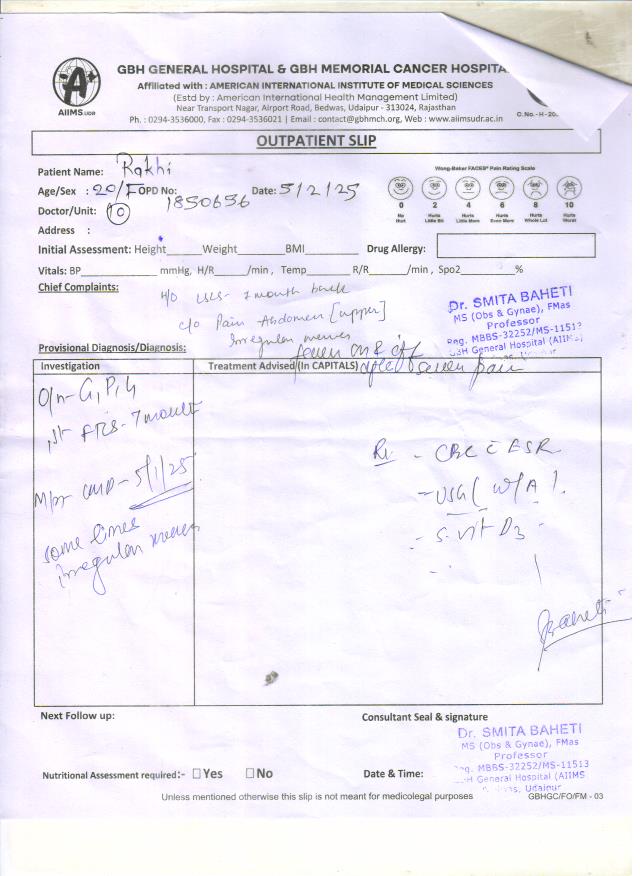 GBH GENERAL HOSPITAL & GBH MEMORIAL CANCER HOSPITA
Affiliated with : AMERICAN INTERNATIONAL INSTITUTE OF MEDICAL SCIENCES
(Estd by : American International Health Management Limited)
Near Transport Nagar, Airport Road, Bedwas, Udaipur - 313024, Rajasthan
Ph. : 0294-3536000, Fax : 0294-3536021 | Email : contact@gbhmch.org, Web : www.aiimsudr.ac.in
AIIMS.UDR
C.No.-H-20
OUTPATIENT SLIP
Patient Name: Rakhi
Age/Sex : 20/F OPD No: 1850656 Date: 5/2/25
Doctor/Unit: 10
Address :
Wong-Baker FACES® Pain Rating Scale
0 2 4 6 8 10
No Hurt Hurts Little Bit Hurts Little More Hurts Even More Hurts Whole Lot Hurts Worst
Initial Assessment: Height Weight BMI Drug Allergy:
Vitals: BP mmHg, H/R /min , Temp R/R /min , Spo2 %
Chief Complaints:
H/O LSCS- 7 month back
c/o Pain Abdomen [upper]
Irregular menses
fever on & off
Dr. SMITA BAHETI
MS (Obs & Gynae), FMas
Professor
Reg. MBBS-32252/MS-11513
GBH General Hospital (AIIMS)
Provisional Diagnosis/Diagnosis:
Investigation Treatment Advised (In CAPITALS)
severe pain
O/H- G1P1L1
1st FTCS- 7 month
LMP- 5/1/25
some times
irregular menses
Rx - CBC c ESR
- USG ( W/A ).
- S. Vit D3 -
Baheti
Next Follow up: Consultant Seal & signature
Dr. SMITA BAHETI
MS (Obs & Gynae), FMas
Professor
eg. MBBS-32252/MS-11513
H General Hospital (AIIMS
as, Udaipur
Nutritional Assessment required:- Yes No Date & Time:
Unless mentioned otherwise this slip is not meant for medicolegal purposes GBHGC/FO/FM - 03